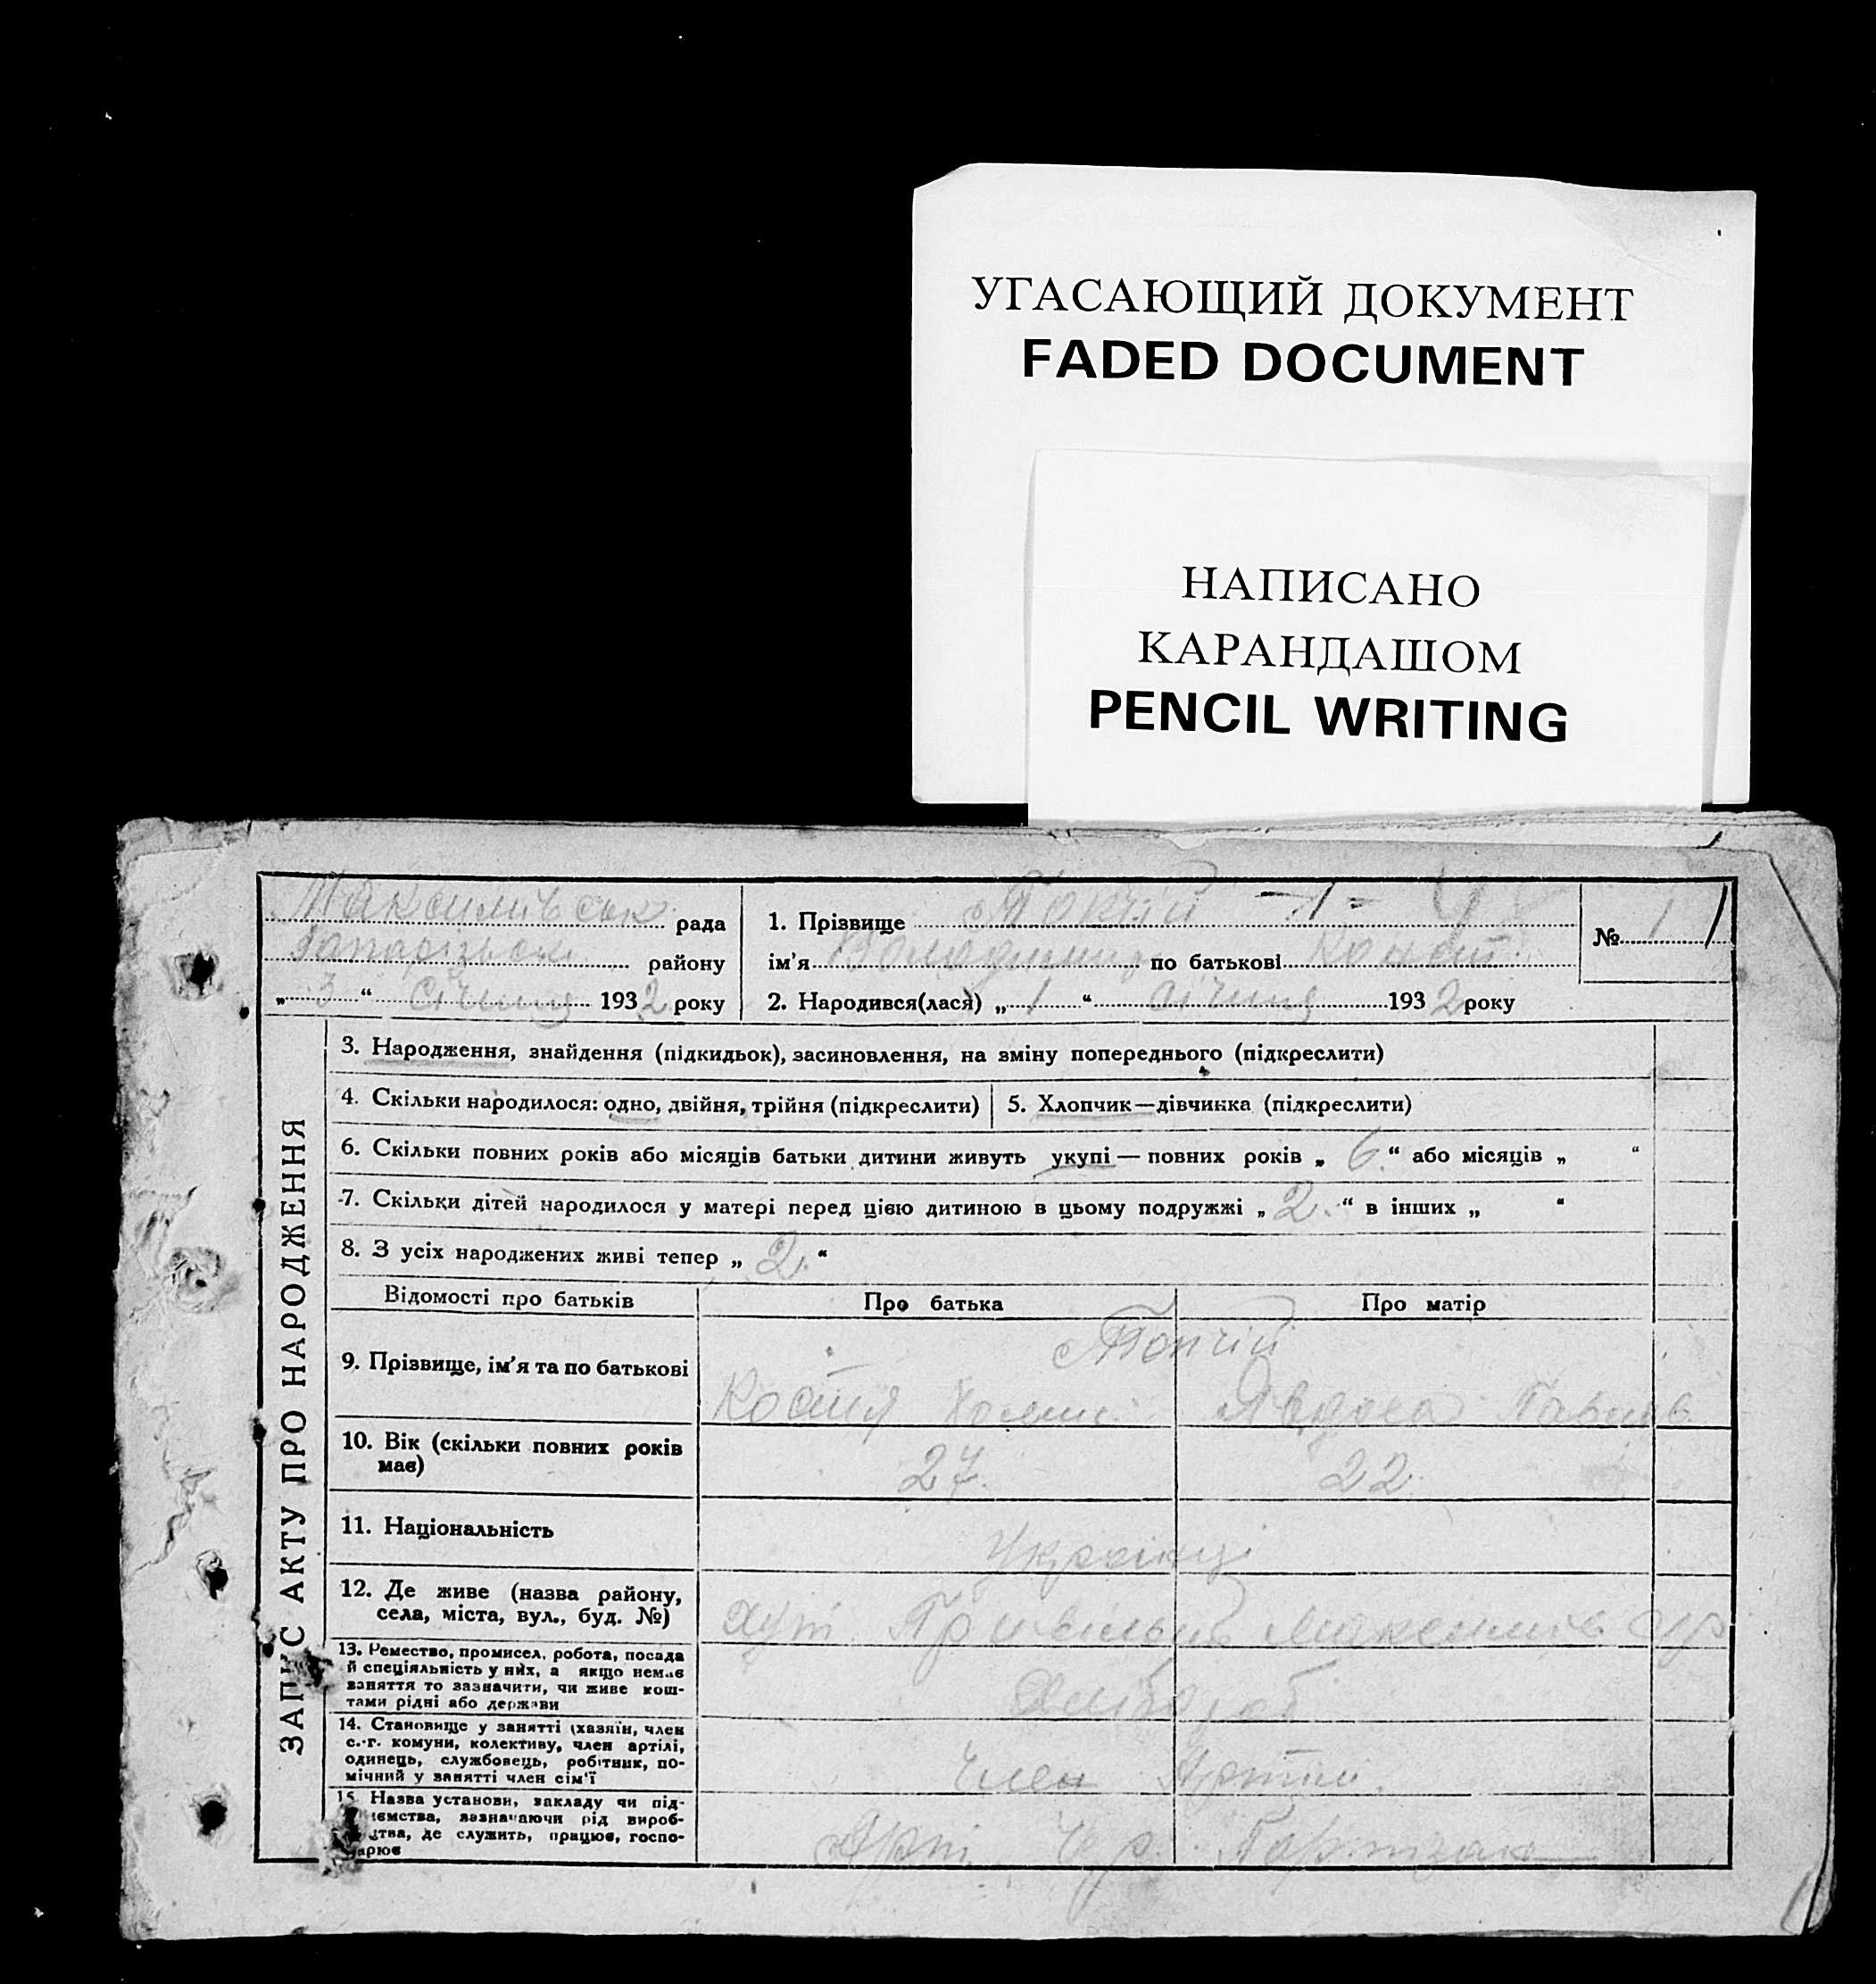 УГАСАЮЩИЙ ДОКУМЕНТ
FADED DOCUMENT
НАПИСАНО
КАРАНДАШОМ
PENCIL WRITING
рада
району
„ 3 “ Січння 1932 року
1. Прізвище
ім'я Володимир по батькові Конст.
2. Народився(лася) „ 1 “ січння 1932 року
№ 1 1
ЗАПИС АКТУ ПРО НАРОДЖЕННЯ
3. Народження, знайдення (підкидьок), засиновлення, на зміну попереднього (підкреслити)
4. Скільки народилося: одно, двійня, трійня (підкреслити)
5. Хлопчик—дівчинка (підкреслити)
6. Скільки повних років або місяців батьки дитини живуть укупі — повних років „ 6. “ або місяців „ “
7. Скільки дітей народилося у матері перед цією дитиною в цьому подружжі „ 2. “ в інших „ “
8. З усіх народжених живі тепер „ 2. “
Відомості про батьків
Про батька
Про матір
9. Прізвище, ім'я та по батькові
Топчій
Костя
10. Вік (скільки повних років
має)
27.
22.
11. Національність
Українці
12. Де живе (назва району,
села, міста, вул., буд. №)
хут.
13. Ремество, промисел, робота, посада
й спеціяльність у них, а якщо немає
заняття то зазначити, чи живе кош-
тами рідні або держави
Хлібороб
14. Становище у занятті (хазяїн, член
с.-г. комуни, колективу, член артілі,
одинець, службовець, робітник, по-
мічний у занятті член сім'ї
Член Артіли.
15. Назва установи, закладу чи під-
иємства, зазначаючи рід вироб-
цтва, де служить, працює, госпо-
дарює
Арт. Ч. р. Партизан